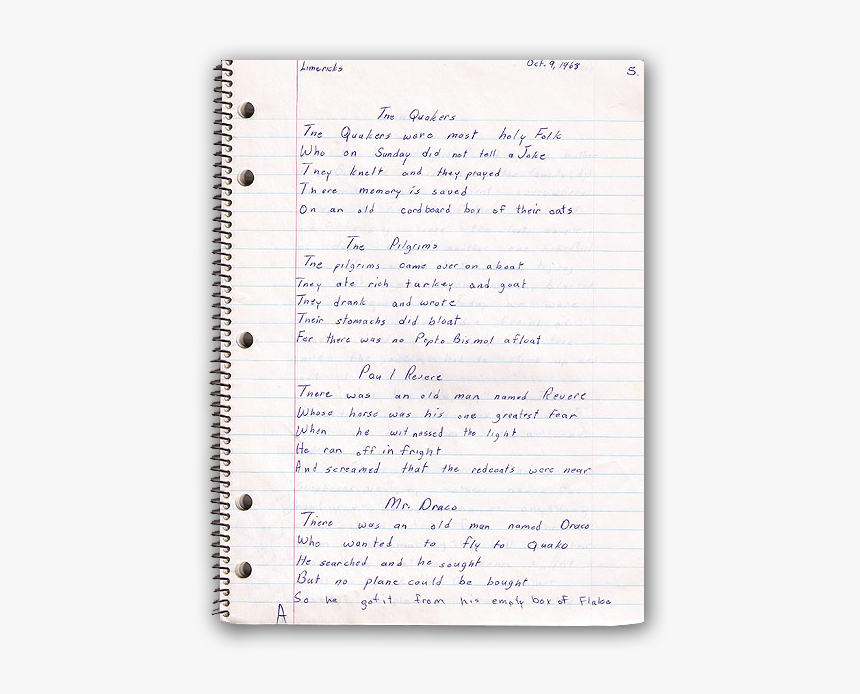 Limericks Oct. 9, 1968 S.
The Quakers
The Quakers were most holy Folk
Who on Sunday did not tell a Joke
They knelt and they prayed
There memory is saved
On an old cordboard box of their oats
The Pilgrims
The pilgrims came over on a boat
They ate rich turkey and goat
They drank and wrote
Their stomachs did bloat
For there was no Pepto Bismol afloat
Paul Revere
There was an old man named Revere
Whose horse was his one greatest Fear
When he witnessed the light
He ran off in fright
And screamed that the redcoats were near
Mr. Draco
There was an old man named Draco
Who wanted to fly to Quako
He searched and he sought
But no plane could be bought
So he got it from his empty box of Flako
A